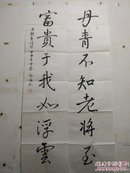 丹青不知老將至
富貴于我如浮雲